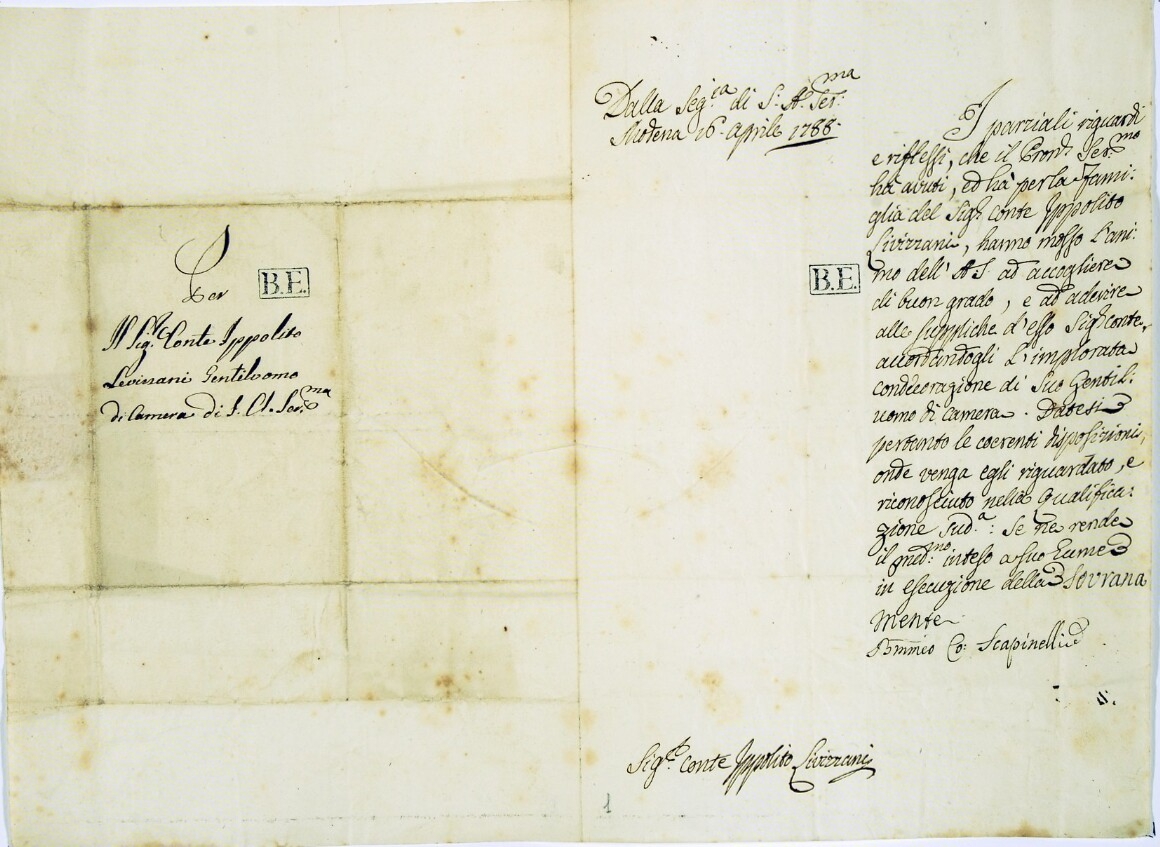 Per
B.E.
Il Sig.r Conte Ippolito
Levizzani Gentiluomo
di Camera di S. A. Ser.ma
Dalla Seg.ria di S: A: Ser:ma
Modena 16. Aprile 1788.
I parziali riguardi
e riflessi, che il Pron.e Ser.mo
ha avuti, ed hà per la Fami:
glia del Sig.r Conte Ippolito
Livizzani, hanno mosso l'ani:
B.E.
mo dell' A S. ad accogliere
di buon grado, e ad aderire
alle suppliche d'esso Sig.r Conte,
accordandogli l'implorata
condecorazione di Suo Gentil:
uomo di Camera. Datesi
pertanto le coerenti disposizioni,
onde venga egli riguardato, e
riconosciuto nella Qualifica:
zione sud.a: Se ne rende
il med:mo inteso a suo Lume
in esecuzione della Sovrana
Mente
Co: Scapinelli
S.
Sig.r Conte Ippolito Livizzani
1